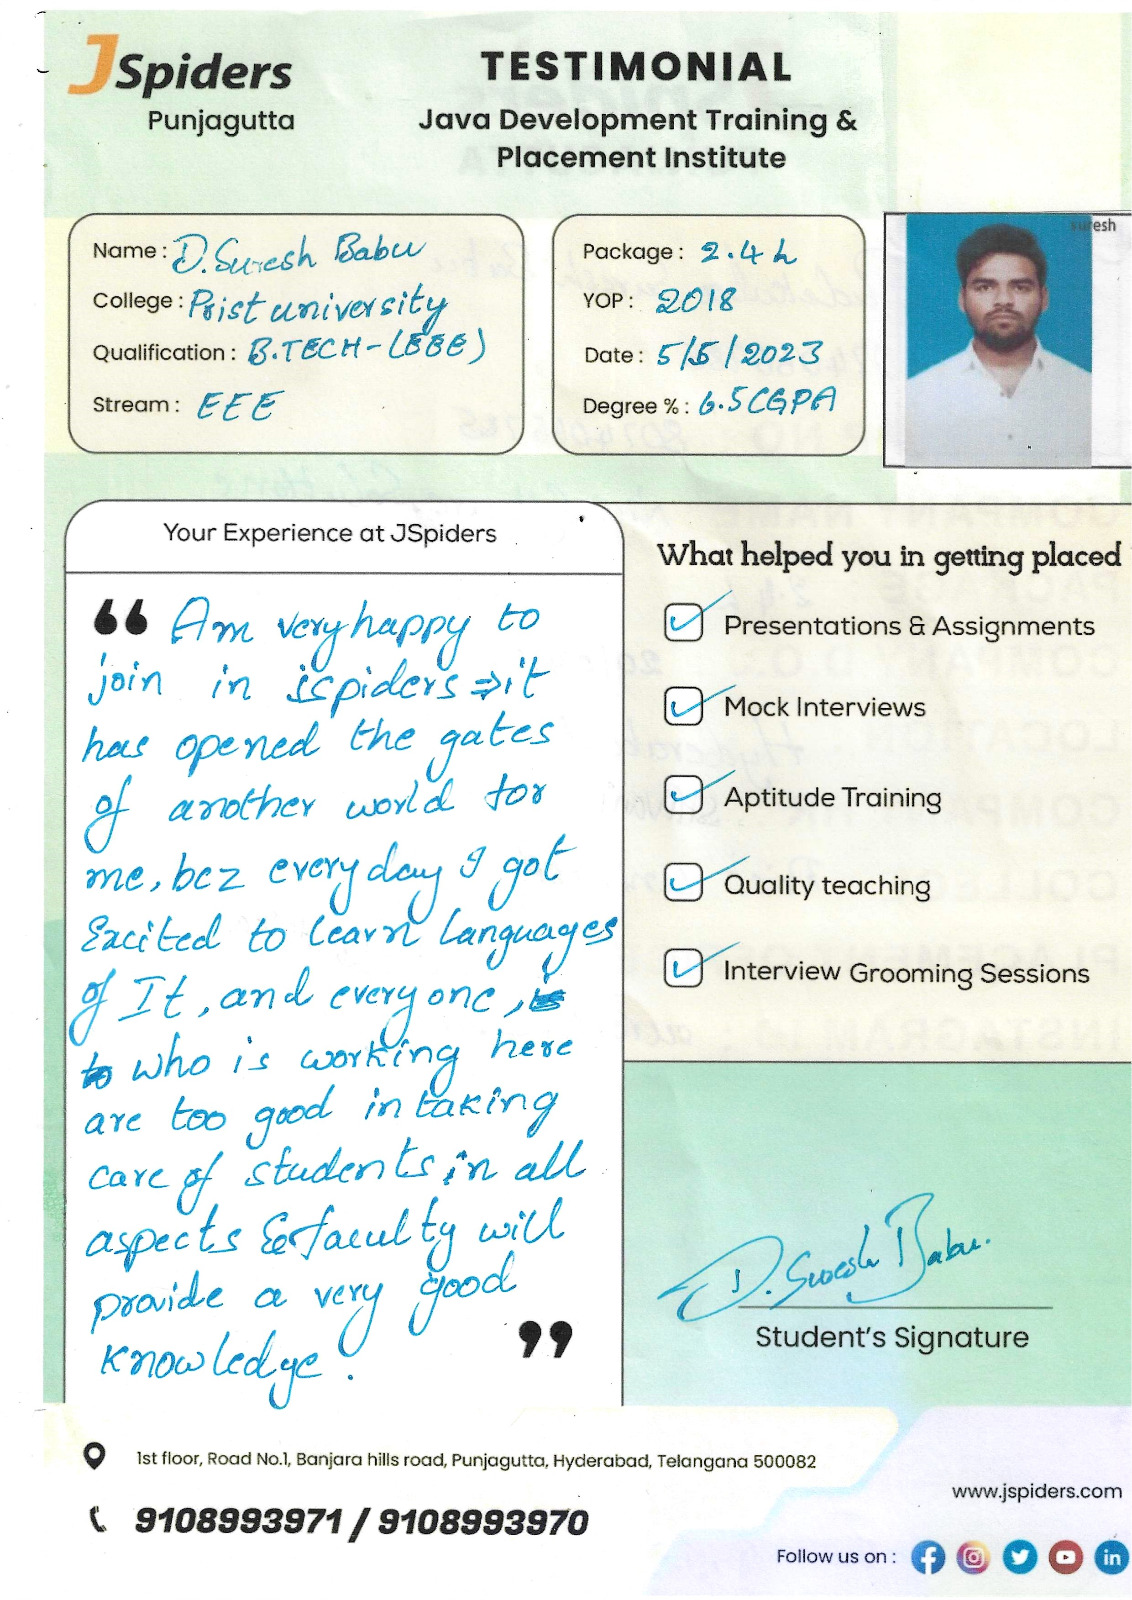 JSpiders
Punjagutta
TESTIMONIAL
Java Development Training &
Placement Institute
Name : D. Suresh Babu
College : Prist university
Qualification : B.TECH-(EEE)
Stream : EEE
Package : 2.4 L
YOP : 2018
Date : 5/5/2023
Degree % : 6.5CGPA
suresh
Your Experience at JSpiders
“ Am very happy to
join in jspiders ⇒ it
has opened the gates
of another world for
me, bcz every day I got
Excited to learn languages
of It, and every one,
who is working here
are too good in taking
care of students in all
aspects & faculty will
provide a very good
knowledge. ”
What helped you in getting placed
Presentations & Assignments
Mock Interviews
Aptitude Training
Quality teaching
Interview Grooming Sessions
D. Suresh Babu.
Student's Signature
1st floor, Road No.1, Banjara hills road, Punjagutta, Hyderabad, Telangana 500082
9108993971 / 9108993970
www.jspiders.com
Follow us on :